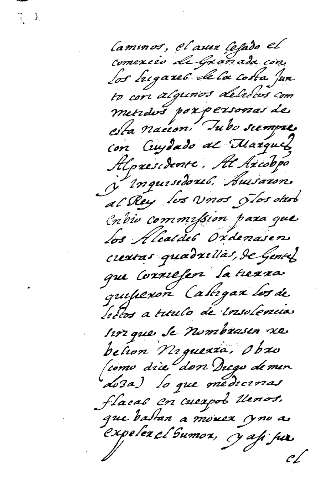 caminos, el aver Cesado el
comercio de Granada con
los lugares de la costa Jun
to con algunos delictos com
metidos por personas de
esta nacion. Tubo siempre
con Cuydado al Marques
Al presidente, Al Arcobpo
y Inquisidores. Auisaron
al Rey los Vnos y los otros
enbio commission para que
los Alcaldes Ordenasen
ciertas quadrillas, de Gente
que corriesen la tierra
quisieron Castigar los de
lictos a titulo de insolencia
sin que se Nombrasen re
belion Ni guerra. Obro
(como dice don Diego de men
doza) lo que medicinas
flacas en cuerpos llenos,
que bastan a mouer y no a
expeler el humor, y asi fue
el